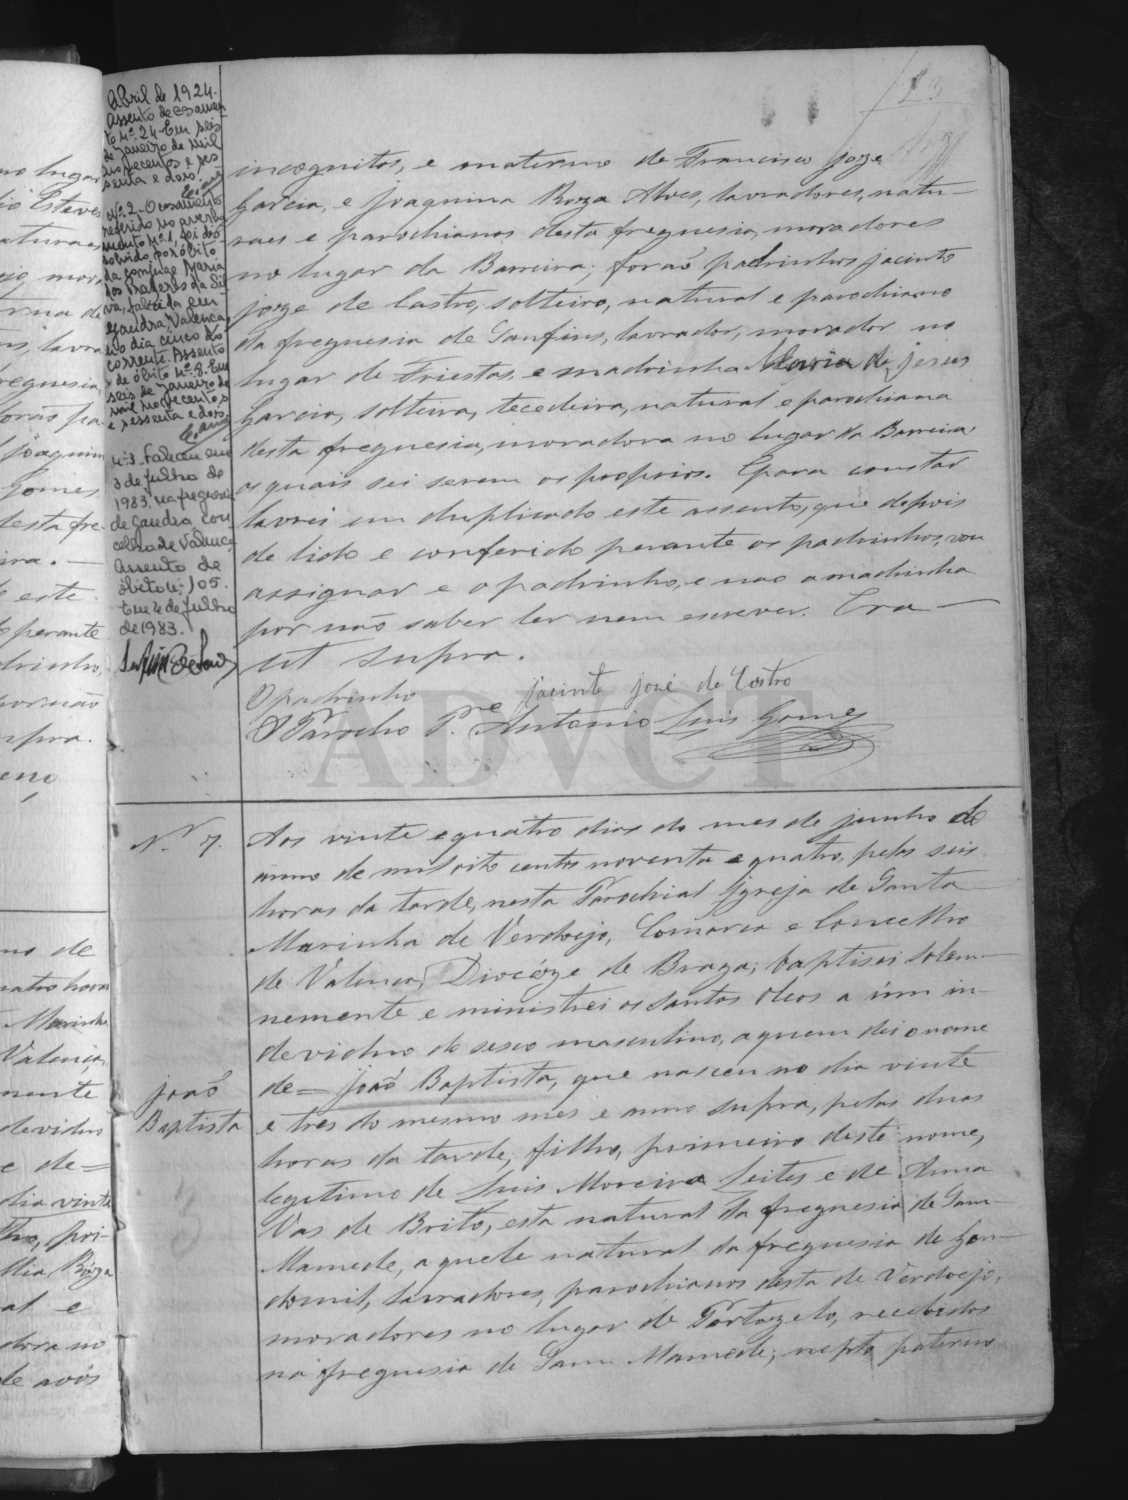 Abril de 1924.
Assento de casamen
to nº 24. Em seis
de Janeiro de mil
novecentos e ses
senta e dois.
Nº 2. O casamento
referido no averba
mento nº 1, foi dis
solvido por óbito
da conjuge Maria
dos Prazeres da Sil
va, falecida em
Gandra, Valença,
no dia cinco do
corrente. Assento
de óbito nº 8. Em
seis de Janeiro de
mil novecentos
e sessenta e dois.
nº 3. Faleceu em
3 de Julho de
1983, na freguesia
de Gandra, con
celho de Valença
Assento de
óbito nº 105.
Em 4 de Julho
de 1983.
incognitos, e materno de Francisco Jorge
Garcia, e Joaquina Roza Alves, lavradores, natu-
raes e parochianos desta freguesia, moradores
no lugar da Barreira; forão padrinhos Jacinto
Jorge de Castro, solteiro, natural e parochiano
da freguesia de Ganfeus, lavrador, morador no
lugar de Friestas, e madrinha Maria de Jesus
Garcia, solteira, tecedeira, natural e parochiana
desta freguesia, moradora no lugar da Barreira
os quais sei serem os proprios. E para constar
lavrei em duplicado este assento, que depois
de lido e conferido perante os padrinhos, vou
assignar e o padrinho, e não a madrinha
por não saber ler nem escrever. Era
ut supra.
O padrinho Jacinto José de Castro
O Parocho P.re Antonio Luis Gomes
ADVCT
Nº 7.
João
Baptista
Aos vinte e quatro dias do mes de junho do
anno de mil oito centos noventa e quatro, pelas seis
horas da tarde, nesta Parochial Igreja de Santa
Marinha de Verdoejo, Comarca e Concelho
de Valença, Diocéze de Braga; baptisei solem-
nemente e ministrei os Santos Oleos a úm in-
deviduo do sexo masculino, a quem dei o nome
de= João Baptista, que nasceu no dia vinte
e tres do mesmo mes e anno supra, pelas duas
horas da tarde, filho, primeiro deste nome,
legitimo de Luis Moreira Leites e de Anna
Vas de Brito, esta natural da freguesia de Sam
Mamede, aquele natural da freguesia de Gon-
domil, lavradores, parochianos desta de Verdoejo,
moradores no lugar de Portozelo, recebidos
na freguesia de Sam Mamede; nepto paterno
no lugar
Esteves
perante
mo de
Marinha
Valença,
mente
deviduo
e de=
dia vinte
pri-
Roza
al e
dora no
de avós